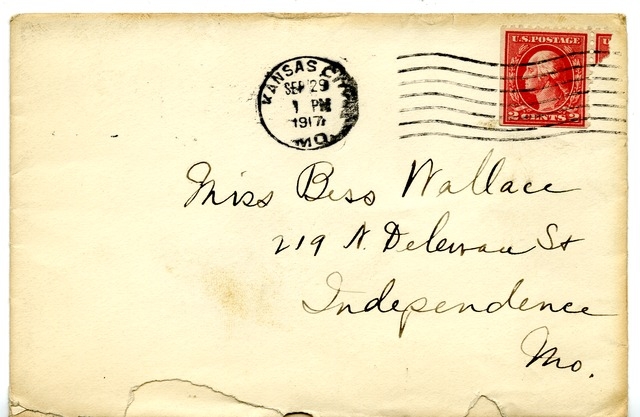 KANSAS CITY
SEP 29
1 PM
1917
MO.
U.S. POSTAGE
2 CENTS 2
U
Miss Bess Wallace
219 N. Delewau St
Independence
Mo.